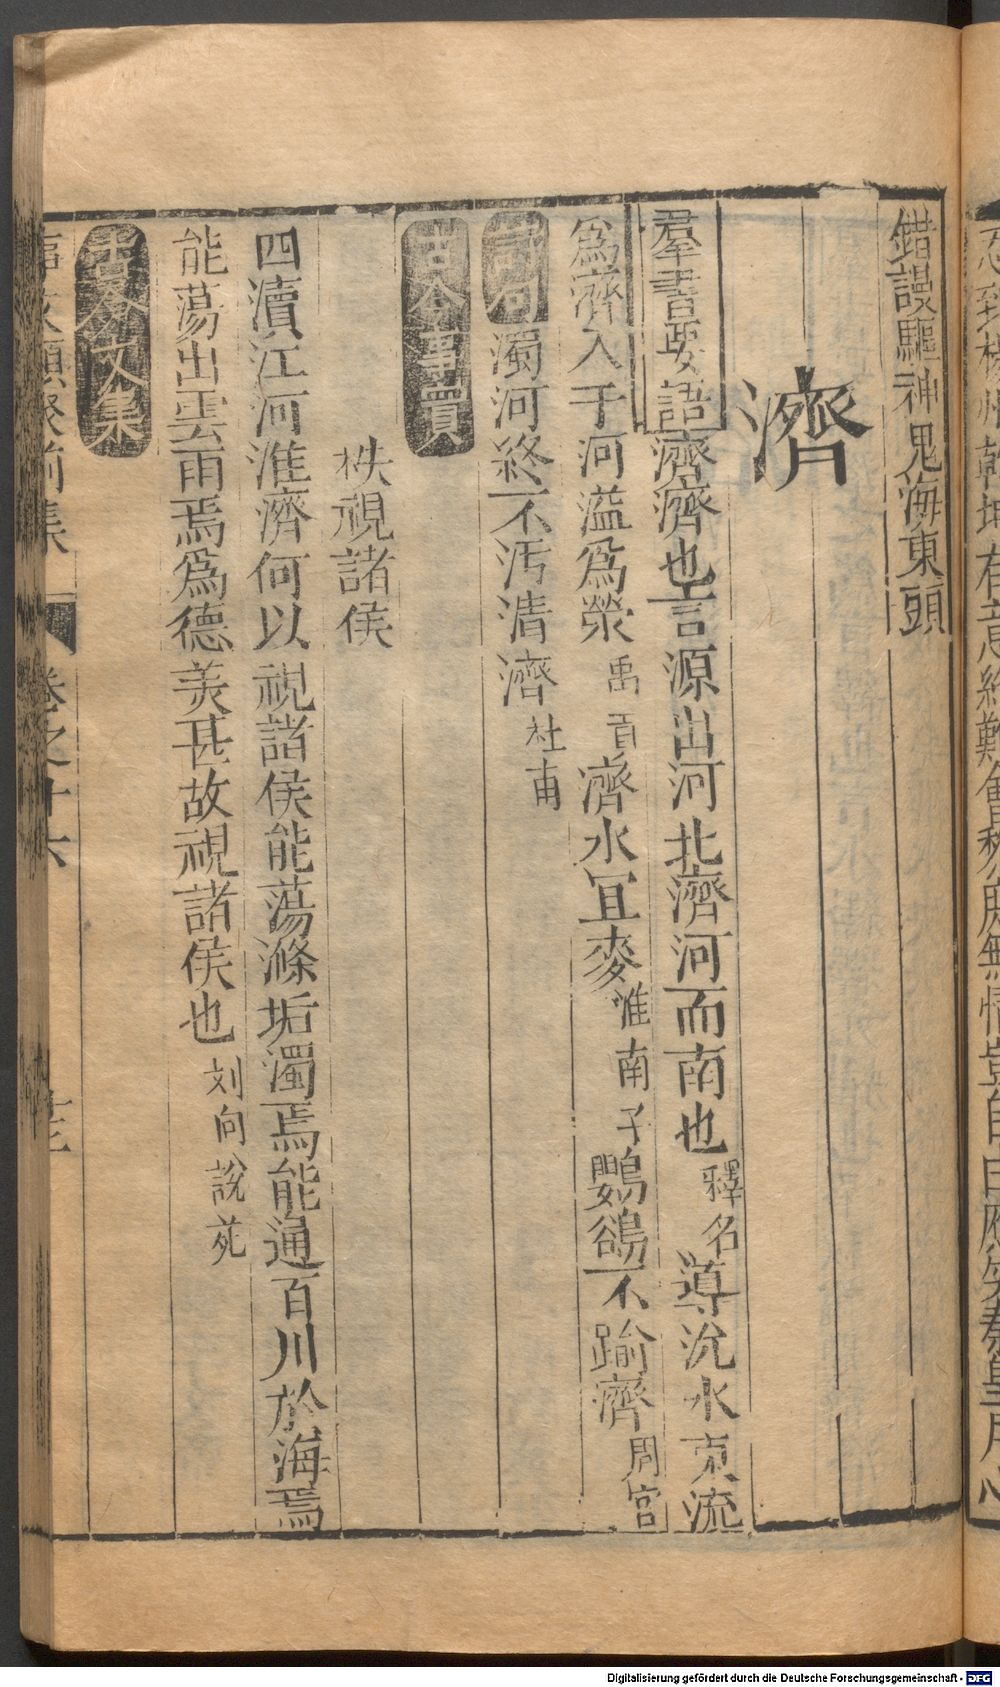 錯謾驅神鬼海東頭
濟
羣書要語濟濟也言源出河北濟河而南也釋名導沇水東流
爲濟入于河溢爲滎禹貢濟水宜麥淮南子鸚鵒不踰濟周官
詩句濁河終不汚清濟杜甫
古今事實
秩視諸侯
四瀆江河淮濟何以視諸侯能蕩滌垢濁焉能通百川於海焉
能蕩出雲雨焉爲德美甚故視諸侯也刘向說苑
古今文集
卷之十六
Digitalisierung gefördert durch die Deutsche Forschungsgemeinschaft - DFG